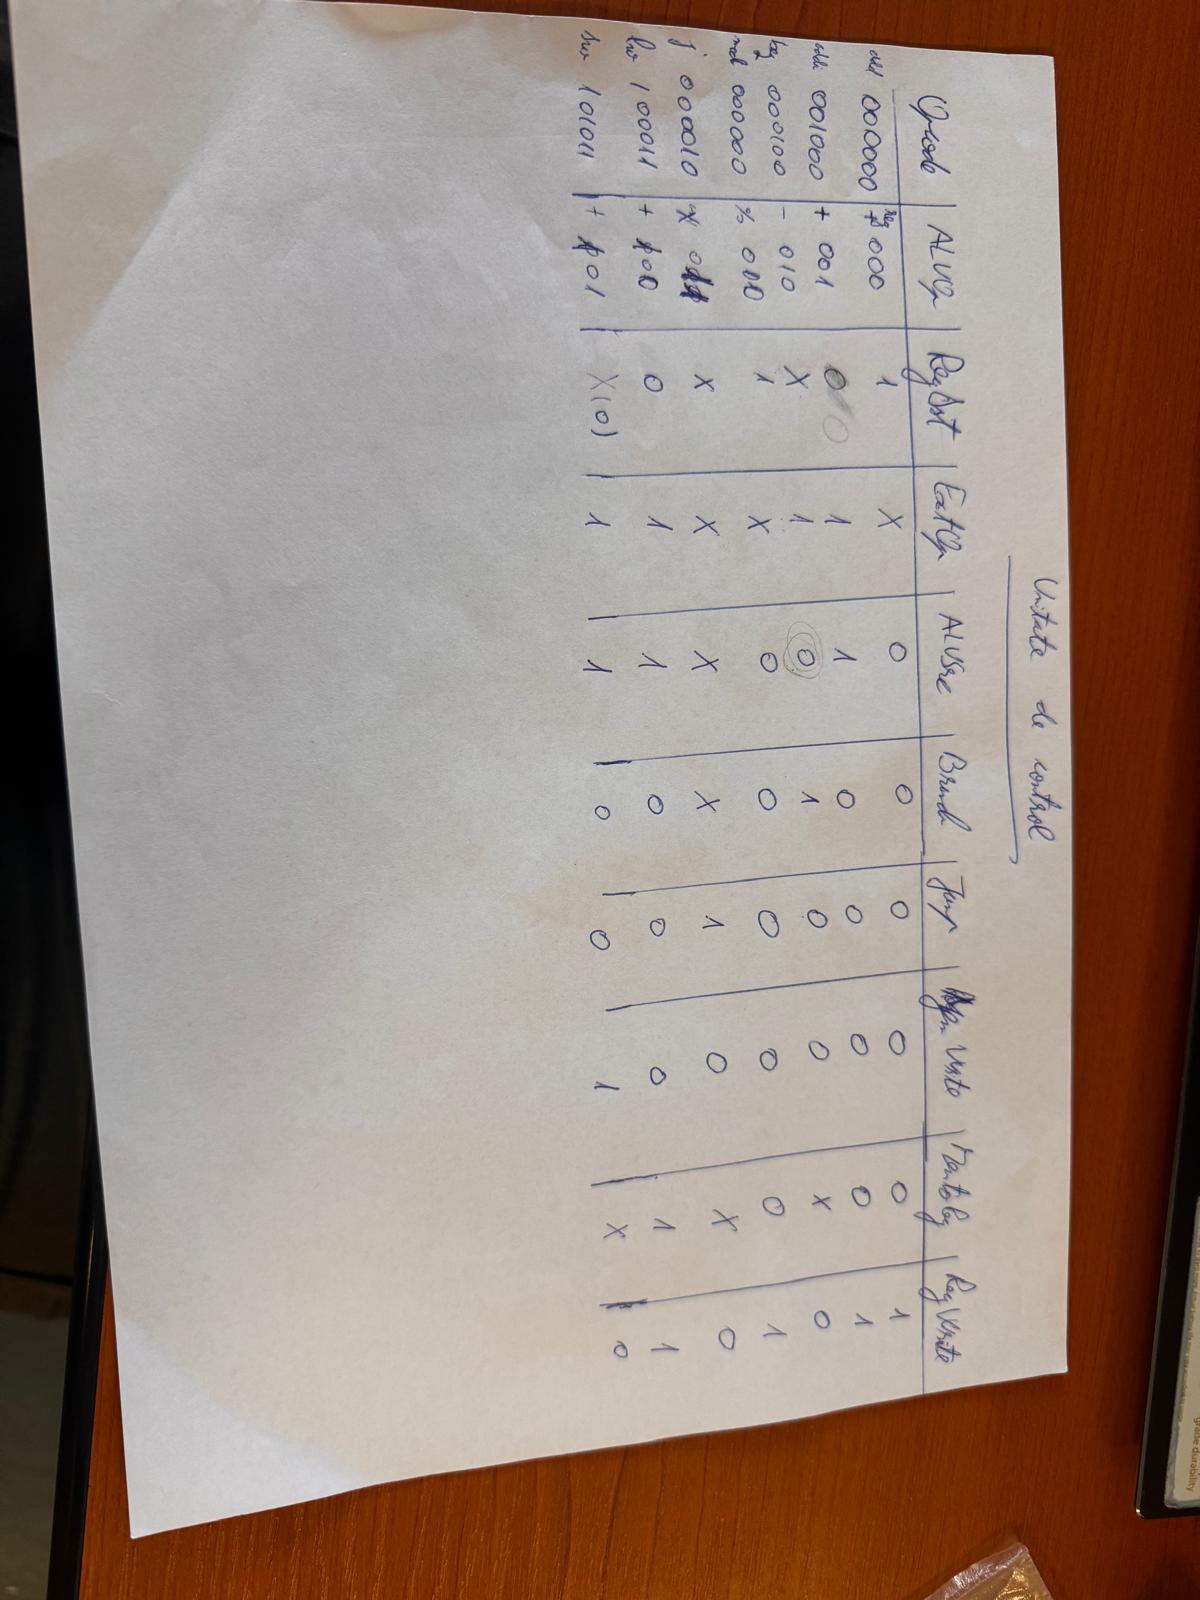 Unitate de control
Opcode | ALUOp | RegDst | ExtOp | ALUSrc | Branch | Jump | Mem Write | MemtoReg | RegWrite
add 000000 | 000 | 1 | X | 0 | 0 | 0 | 0 | 0 | 1
addi 001000 | + 001 | 0 | 1 | 1 | 0 | 0 | 0 | 0 | 1
beq 000100 | - 010 | X | 1 | 0 | 1 | 0 | 0 | X | 0
000000 | % | 1 | X | 0 | 0 | 0 | 0 | 0 | 1
j 000010 | X | X | X | X | X | 1 | 0 | X | 0
lw 100011 | + | 0 | 1 | 1 | 0 | 0 | 0 | 1 | 1
sw 101011 | + | X(0) | 1 | 1 | 0 | 0 | 1 | X | 0
grade durability